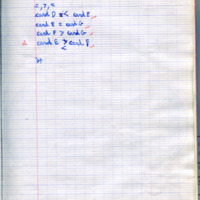 =, >, <
card D < card E
card E = card G
card F > card G
2 card E > < card F